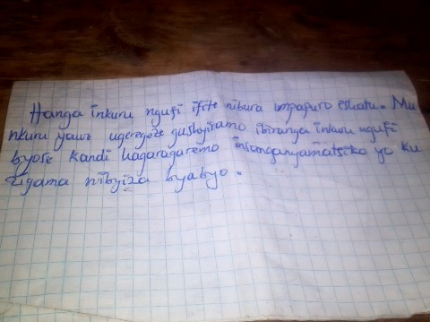 Hanga inkuru ngufi ifite nibura impapuro eshatu. Mu
nkuru yawe ugerageze gushyiramo ibiranga inkuru ngufi
byose kandi hagaragaremo insanganyamatsiko yo ku
zigama nibyiza byabyo.